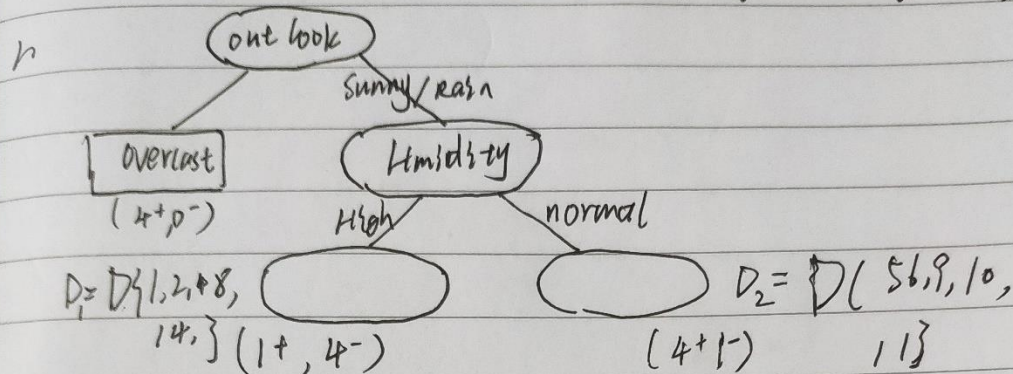 n
outlook
Sunny/Rain
overcast
Hmidity
(4+,0-)
High
normal
D1= D{1,2,48,
14,}
(1+, 4-)
D2= D{ 56,9,10,
11}
(4+1-)